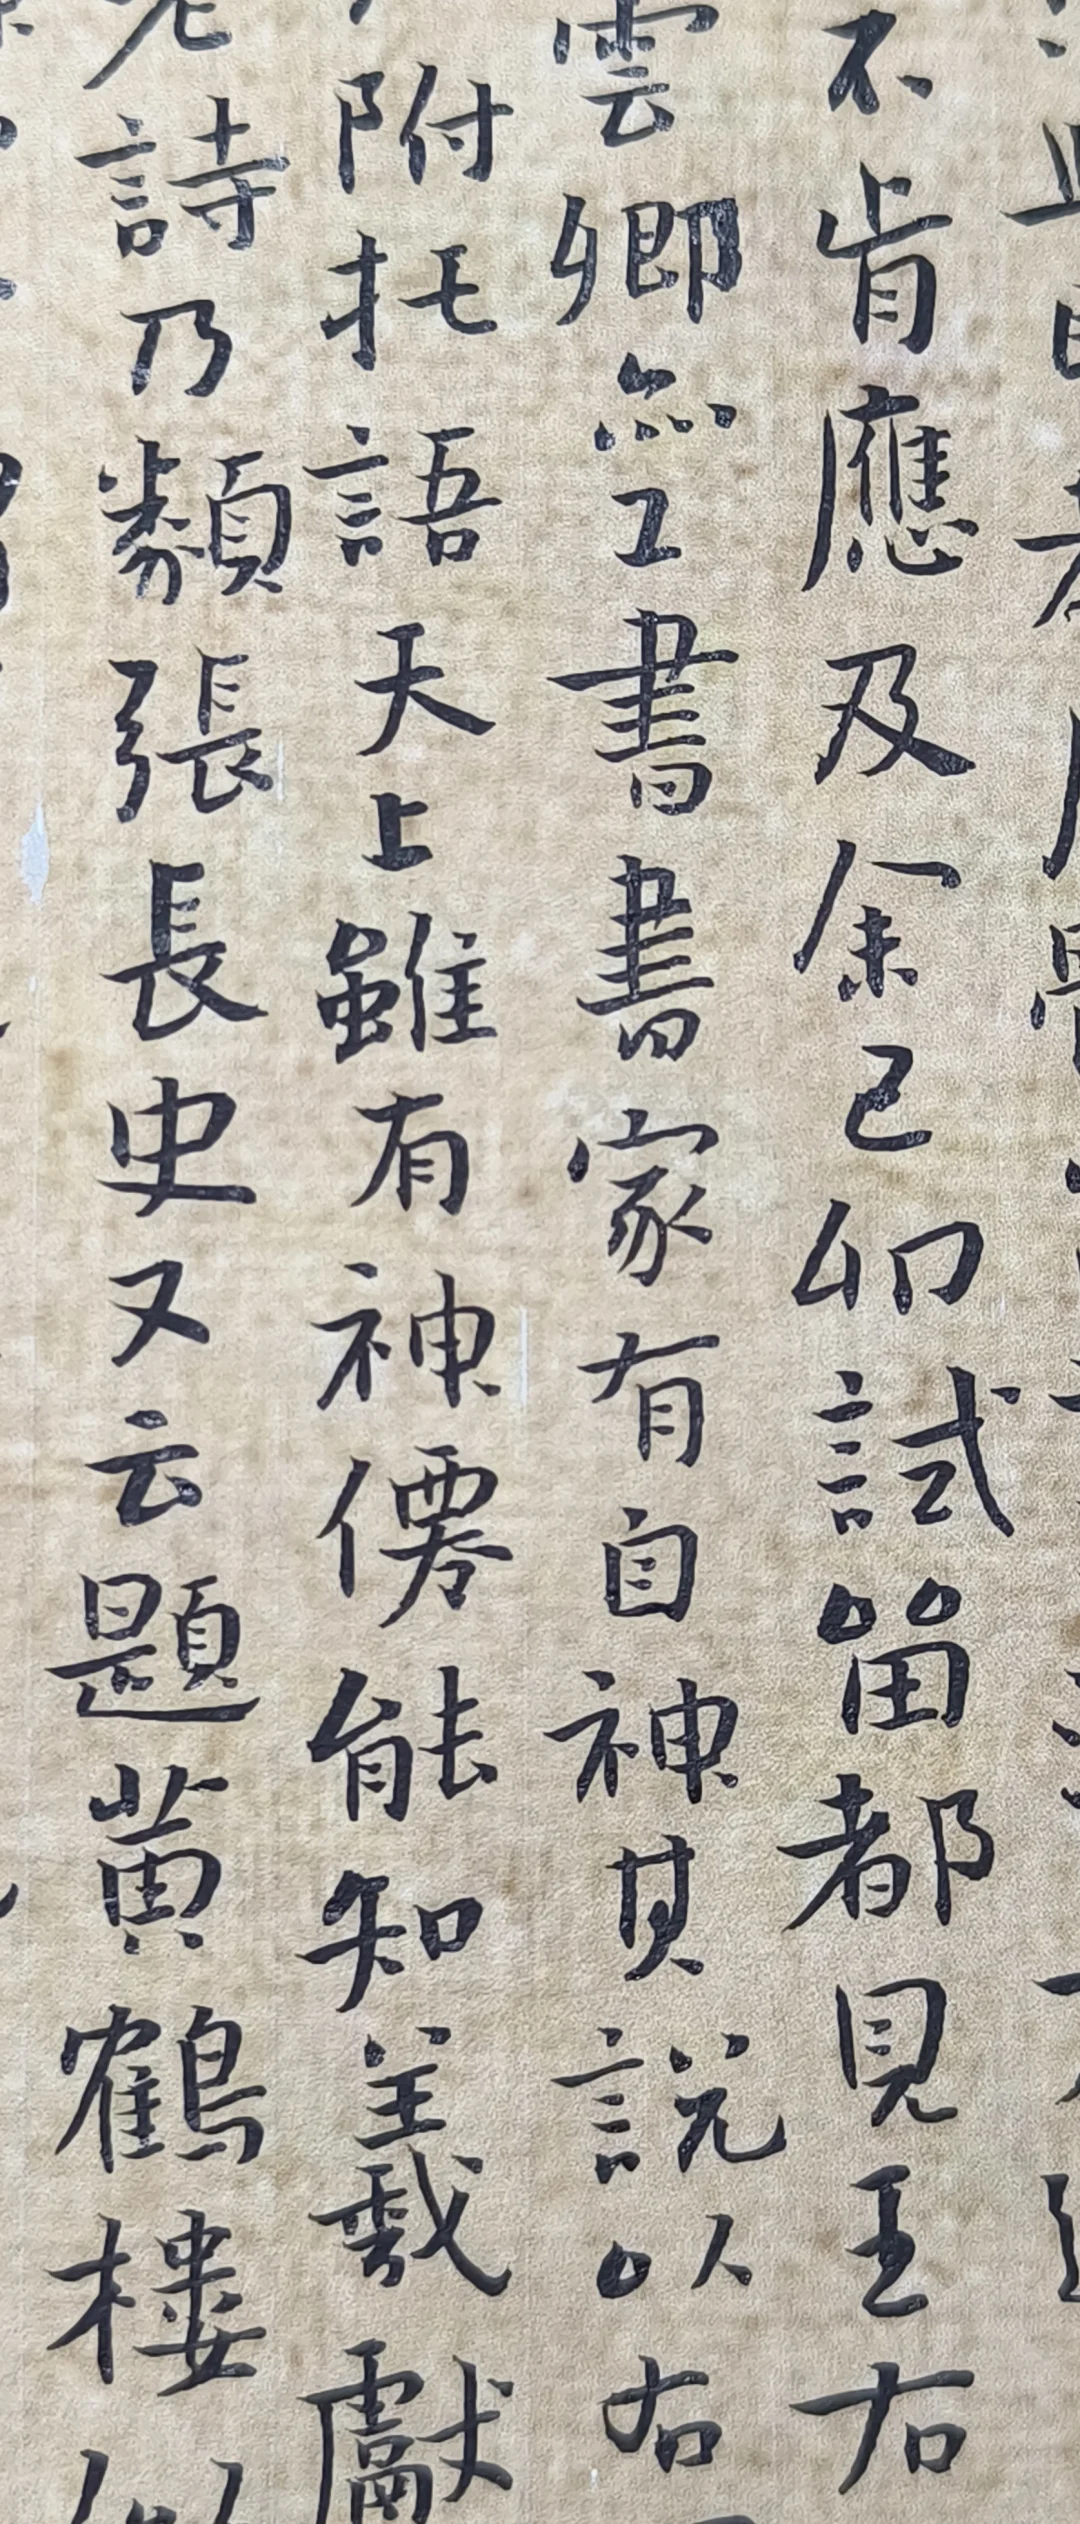 不肯應及余己卯試留都見王右
雲卿亦工書書家有自神其說以右
附托語天上雖有神僊能知羲獻
詩乃類張長史又云題黃鶴樓似